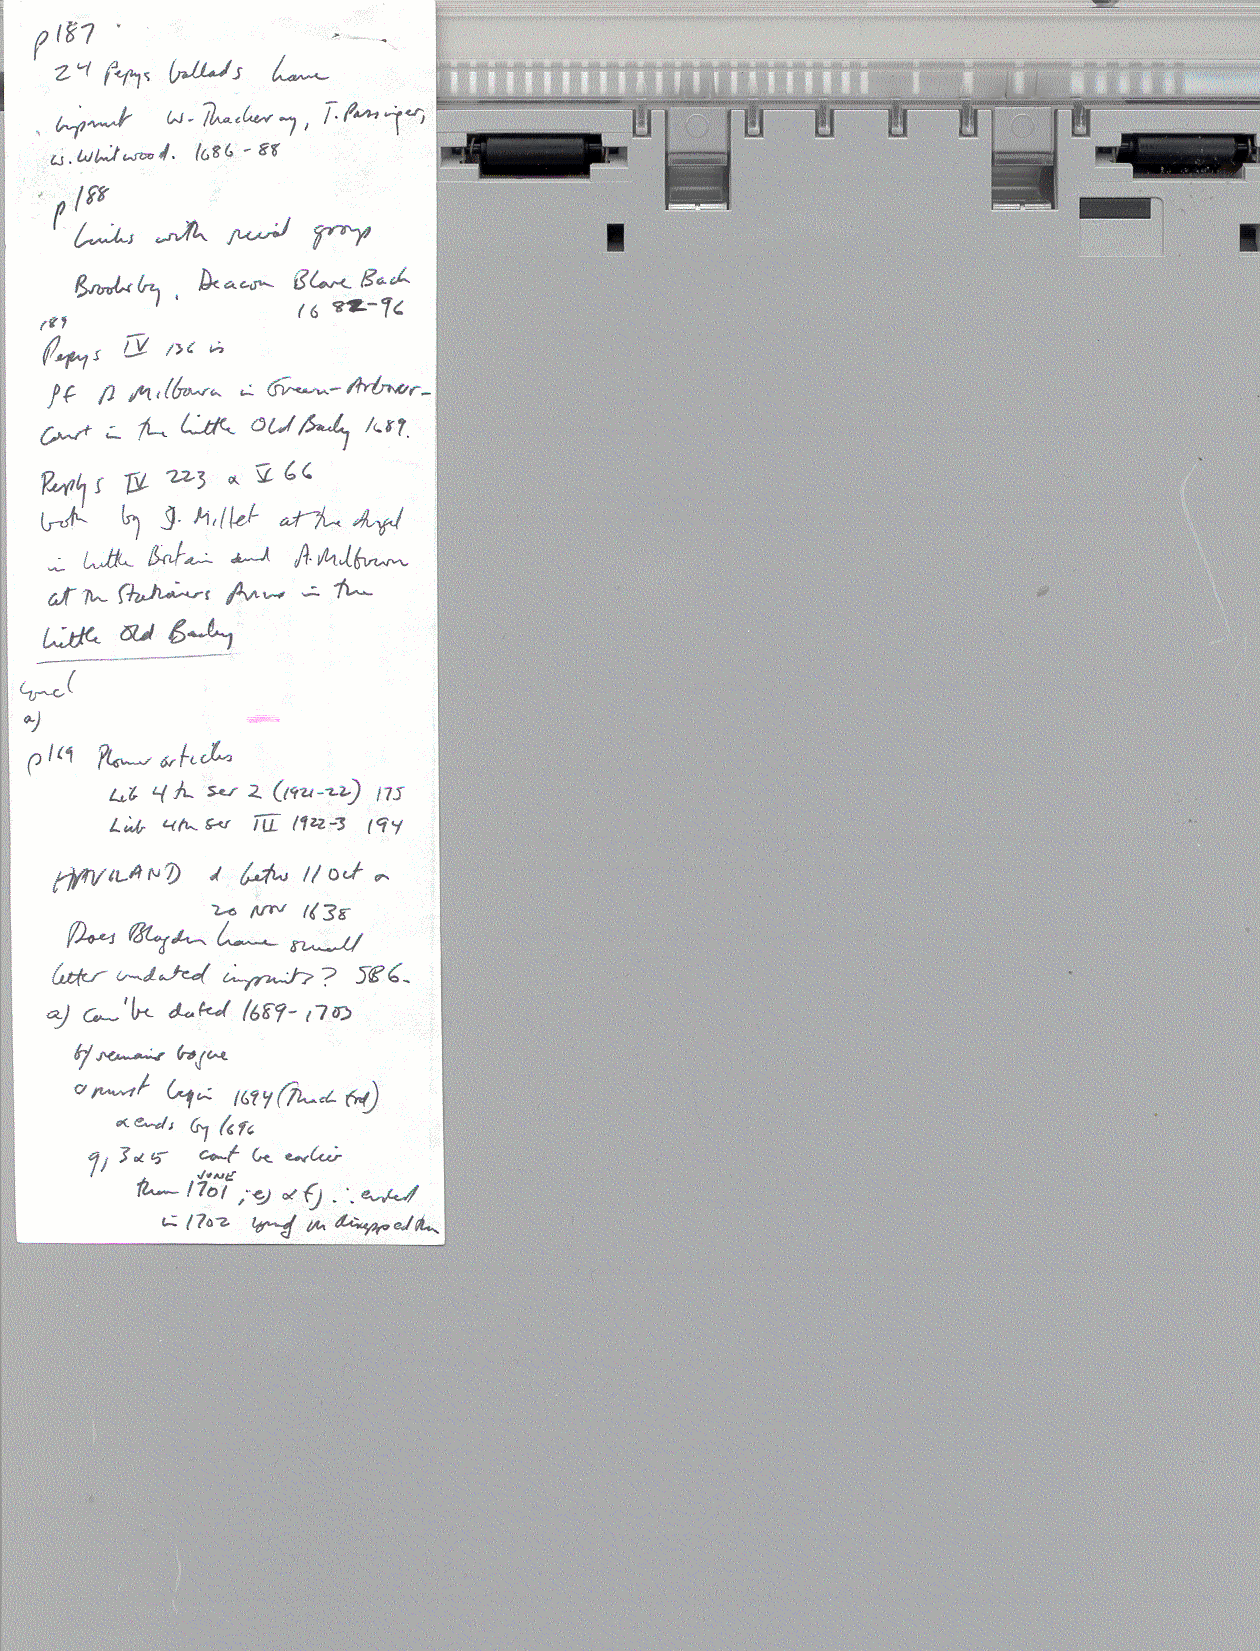 p187
24 Pepys ballads have
imprint W. Thackeray, T. Passinger,
W. Whitwood. 1686-88
p188
Links with rival group
Brooksby, Deacon Blare Back
1682-96
189
Pepys IV 136 is
Pf A Milbourn in Green-Arbour-
Court in the Little Old Baily 1689.
Pepys IV 223 & V 66
both by J. Millet at the Angel
in Little Britain and A. Milbourn
at the Stationers Arms in the
Little Old Bailey
a)
p169 Plomer articles
Lib 4th ser 2 (1921-22) 175
Lib 4th ser III 1922-3 194
HAVILAND d betw 11 Oct &
20 Nov 1638
Does Blagden have small
letter undated imprints? 586.
a) can be dated 1689-1703
b) remains vague
c) must begin 1694 (Thack end)
& ends by 1696
g, 3 & 5 can't be earlier
JUNE
than 1701; e) & f) ∴ ended
in 1702